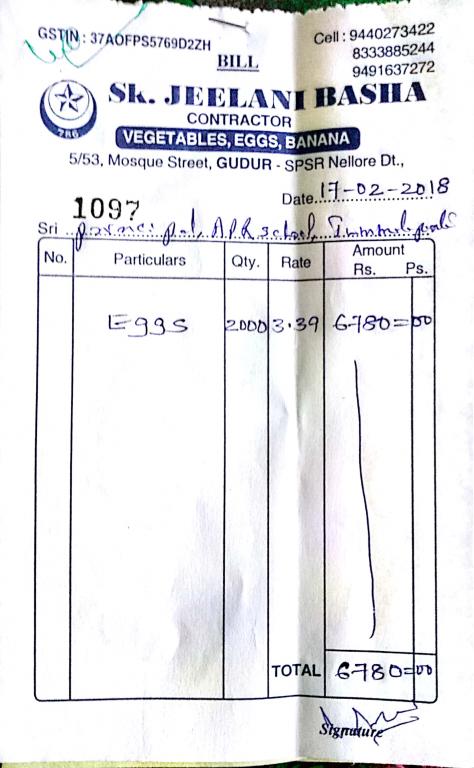 GSTIN : 37AOFPS5769D2ZH
Cell : 9440273422
8333885244
9491637272
BILL
786
Sk. JEELANI BASHA
CONTRACTOR
VEGETABLES, EGGS, BANANA
5/53, Mosque Street, GUDUR - SPSR Nellore Dt.,
1097
Date 17-02-2018
Sri A.P.R school
No. Particulars Qty. Rate Amount
Rs. Ps.
Eggs 2000 3.39 6780=00
TOTAL 6780=00
Signature